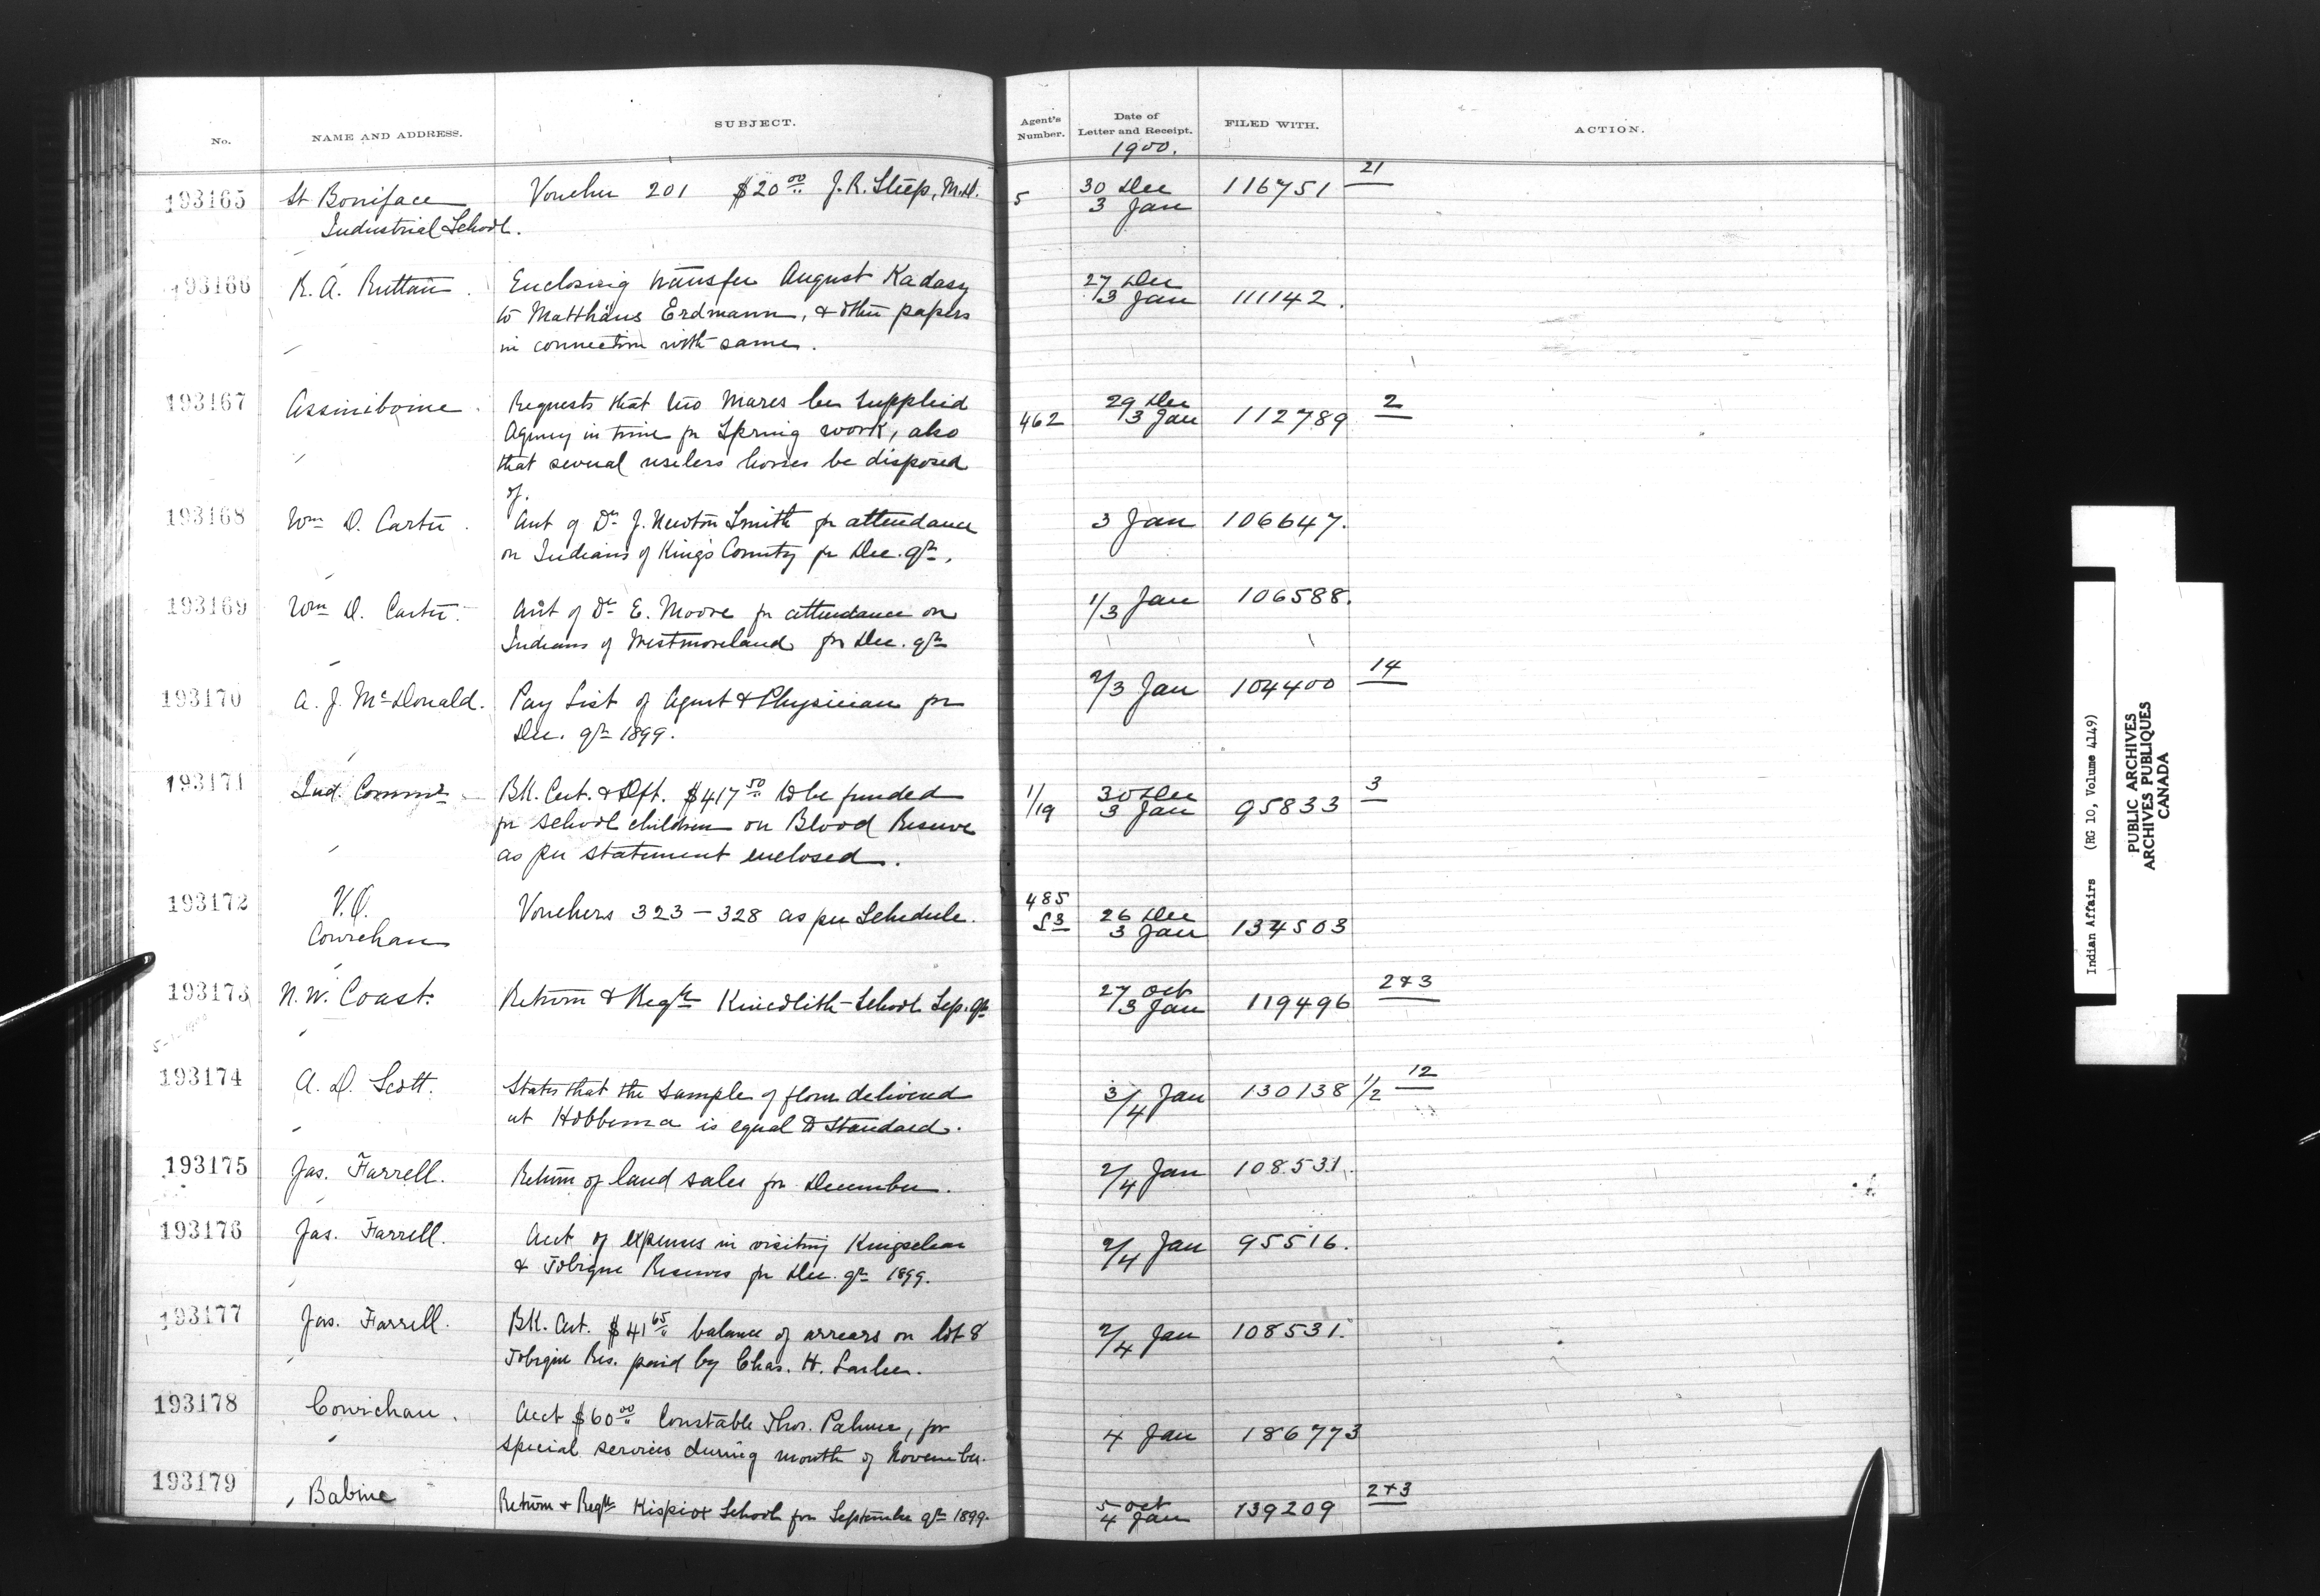 No. NAME AND ADDRESS. SUBJECT. Agent's Number. Date of Letter and Receipt. FILED WITH. ACTION.
1900.
193165 St Boniface Voucher 201 $20 00 J. R. Steep, M.D. 5 30 Dec 116751 21
Industrial School. 3 Jan
193166 R. A. Ruttan. Enclosing transfer August Kadasy 27 Dec
to Matthäus Erdmann, & other papers 3 Jan 111142.
in connection with same.
193167 Assiniboine. Requests that two mares be supplied 29 Dec 2
Agency in time for Spring work, also 462 3 Jan 112789
that several useless horses be disposed
of.
193168 Wm D. Carter. Acct of Dr J. Newton Smith for attendance 3 Jan 106647.
on Indians of Kings County for Dec. qr.
193169 Wm D. Carter. Acct of Dr E. Moore for attendance on 1/3 Jan 106588.
Indians of Westmoreland for Dec. qr
193170 A. J. McDonald. Pay List of Agent & Physician for 2/3 Jan 104400 14
Dec. qr 1899.
193171 Ind. Commr Bk. Cert. & Dft. $417 50 to be funded 1/19 30 Dec 3
for school children on Blood Reserve 3 Jan 95833
as per statement enclosed.
193172 V.O. Vouchers 323 – 328 as per Schedule. 485 26 Dec
Cowichan 3 Jan 134503
193173 N. W. Coast. Return & Reqn Kincolith School Sep. qr 27 Oct 2&3
3 Jan 119496
193174 A. D. Scott. States that the sample of flour delivered 3/4 Jan 130138 1/2 12
at Hobbema is equal to Standard.
193175 Jas. Farrell. Return of land sales for December. 2/4 Jan 108531.
193176 Jas. Farrell. Acct of expenses in visiting Kingsclear 2/4 Jan 95516.
& Tobique Reserves for Dec. qr 1899.
193177 Jas. Farrell. Bk. Cert. $41 65 balance of arrears on lot 8 2/4 Jan 108531.
Tobique Res. paid by Chas. H.
193178 Cowichan. Acct $60 00 Constable Thos. Palmer, for 4 Jan 186773
special services during month of November.
193179 Babine Return & Reqn Kispiox School for September qr 1899. 5 Oct 2&3
4 Jan 139209
Indian Affairs (RG 10, Volume 4149)
PUBLIC ARCHIVES
ARCHIVES PUBLIQUES
CANADA